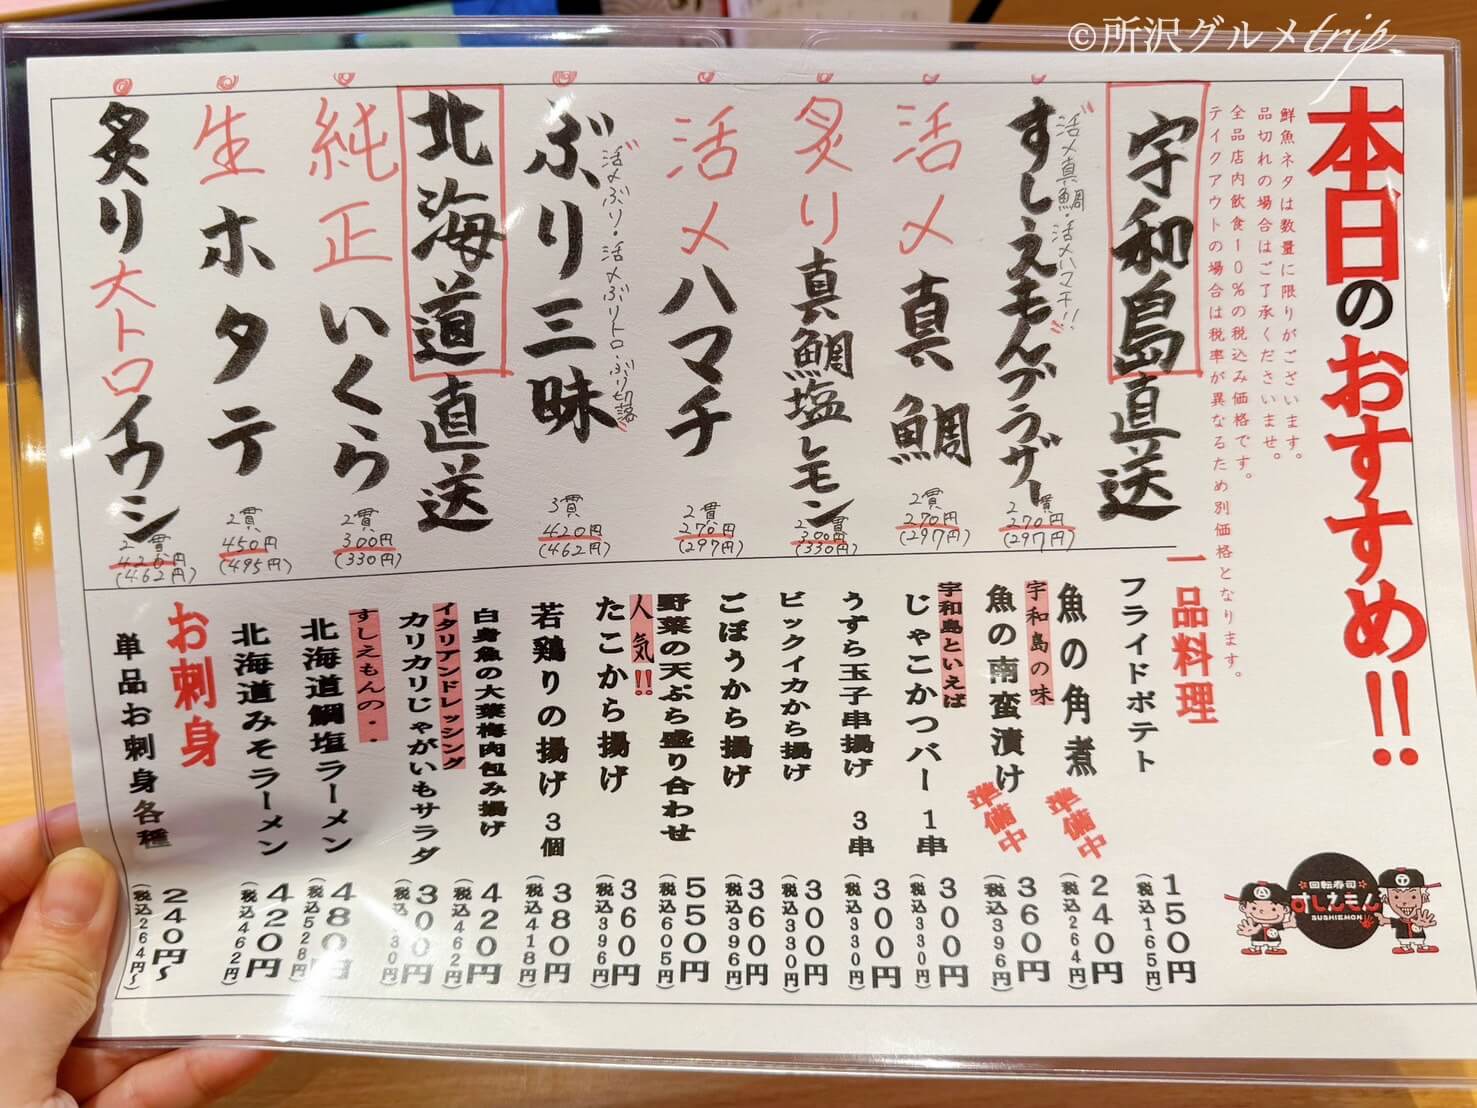 ©所沢グルメtrip
本日のおすすめ!!
鮮魚ネタは数量に限りがございます。
品切れの場合はご了承くださいませ。
全品店内飲食10%の税込み価格です。
テイクアウトの場合は税率が異なるため別価格となります。
宇和島直送
活〆真鯛・活〆ハマチ!!
すしえもんブラザー
2貫
270円
(297円)
活〆真鯛
2貫
270円
(297円)
炙り真鯛塩レモン
2貫
300円
(330円)
活〆ハマチ
2貫
270円
(297円)
活〆ぶり・活〆ぶりトロ・ぶり切落
ぶり三昧
3貫
420円
(462円)
北海道直送
純正いくら
2貫
300円
(330円)
生ホタテ
2貫
450円
(495円)
炙り大トロイワシ
2貫
420円
(462円)
一品料理
フライドポテト
150円
(税込165円)
魚の角煮
準備中
240円
(税込264円)
宇和島の味
魚の南蛮漬け
準備中
360円
(税込396円)
宇和島といえば
じゃこかつバー 1串
300円
(税込330円)
うずら玉子串揚げ 3串
300円
(税込330円)
ビックイカから揚げ
300円
(税込330円)
ごぼうから揚げ
360円
(税込396円)
野菜の天ぷら盛り合わせ
550円
(税込605円)
人気!!
たこから揚げ
360円
(税込396円)
若鶏りの揚げ 3個
380円
(税込418円)
白身魚の大葉梅肉包み揚げ
420円
(税込462円)
イタリアンドレッシング
カリカリじゃがいもサラダ
300円
(税込330円)
すしえもんの・・
北海道鯛塩ラーメン
480円
(税込528円)
北海道みそラーメン
420円
(税込462円)
お刺身
単品お刺身各種
240円～
(税込264円～)
回転寿司
すしえもん
SUSHIEMON